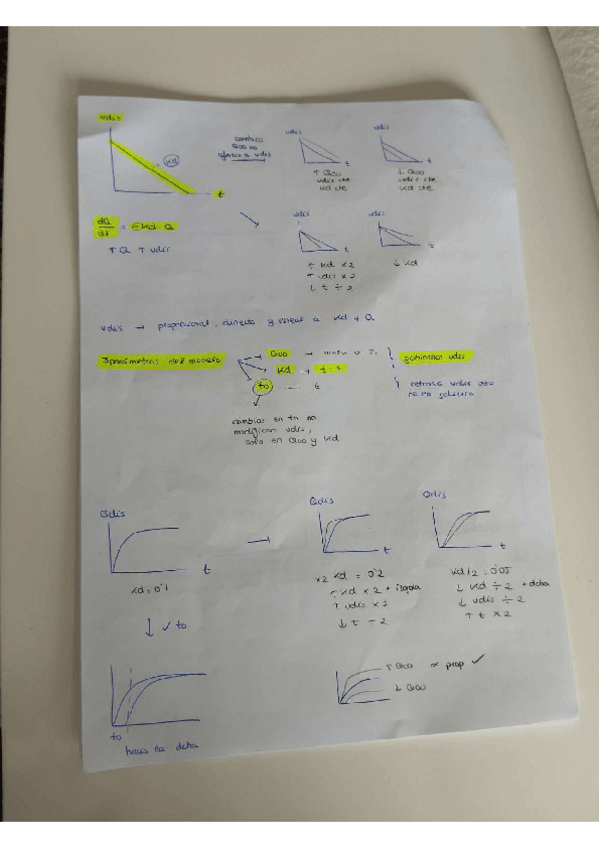 vdis
kd
t
cambios
Q∞ no
afecta a vdis
vdis
t
↑ Q∞
vdis cte
kd cte
vdis
t
↓ Q∞
vdis cte
kd cte
dQ/dt = -kd · Q
↑ Q ↑ vdis
vdis
t
↑ kd x2
↑ vdis x2
↓ t ÷ 2
vdis
t
↓ kd
vdis → proporcional, directa y a kd y Q
3 parámetros del modelo
Q∞ →
kd →
to t
gobiernan vdis
retrasa vdis
no gobierna
cambios en to no
modifican vdis,
solo en Q∞ y kd
Qdis
t
kd = 0'1
↓ ✓ to
Qdis
t
x2 kd = 0'2
↑ kd x 2 + izqda
↑ vdis x2
↓ t ÷ 2
Qdis
t
kd/2 = 0'05
↓ kd ÷ 2 + dcha
↓ vdis ÷ 2
↑ t x 2
to
hacia la dcha
↑ Q∞ prop ✓
↓ Q∞